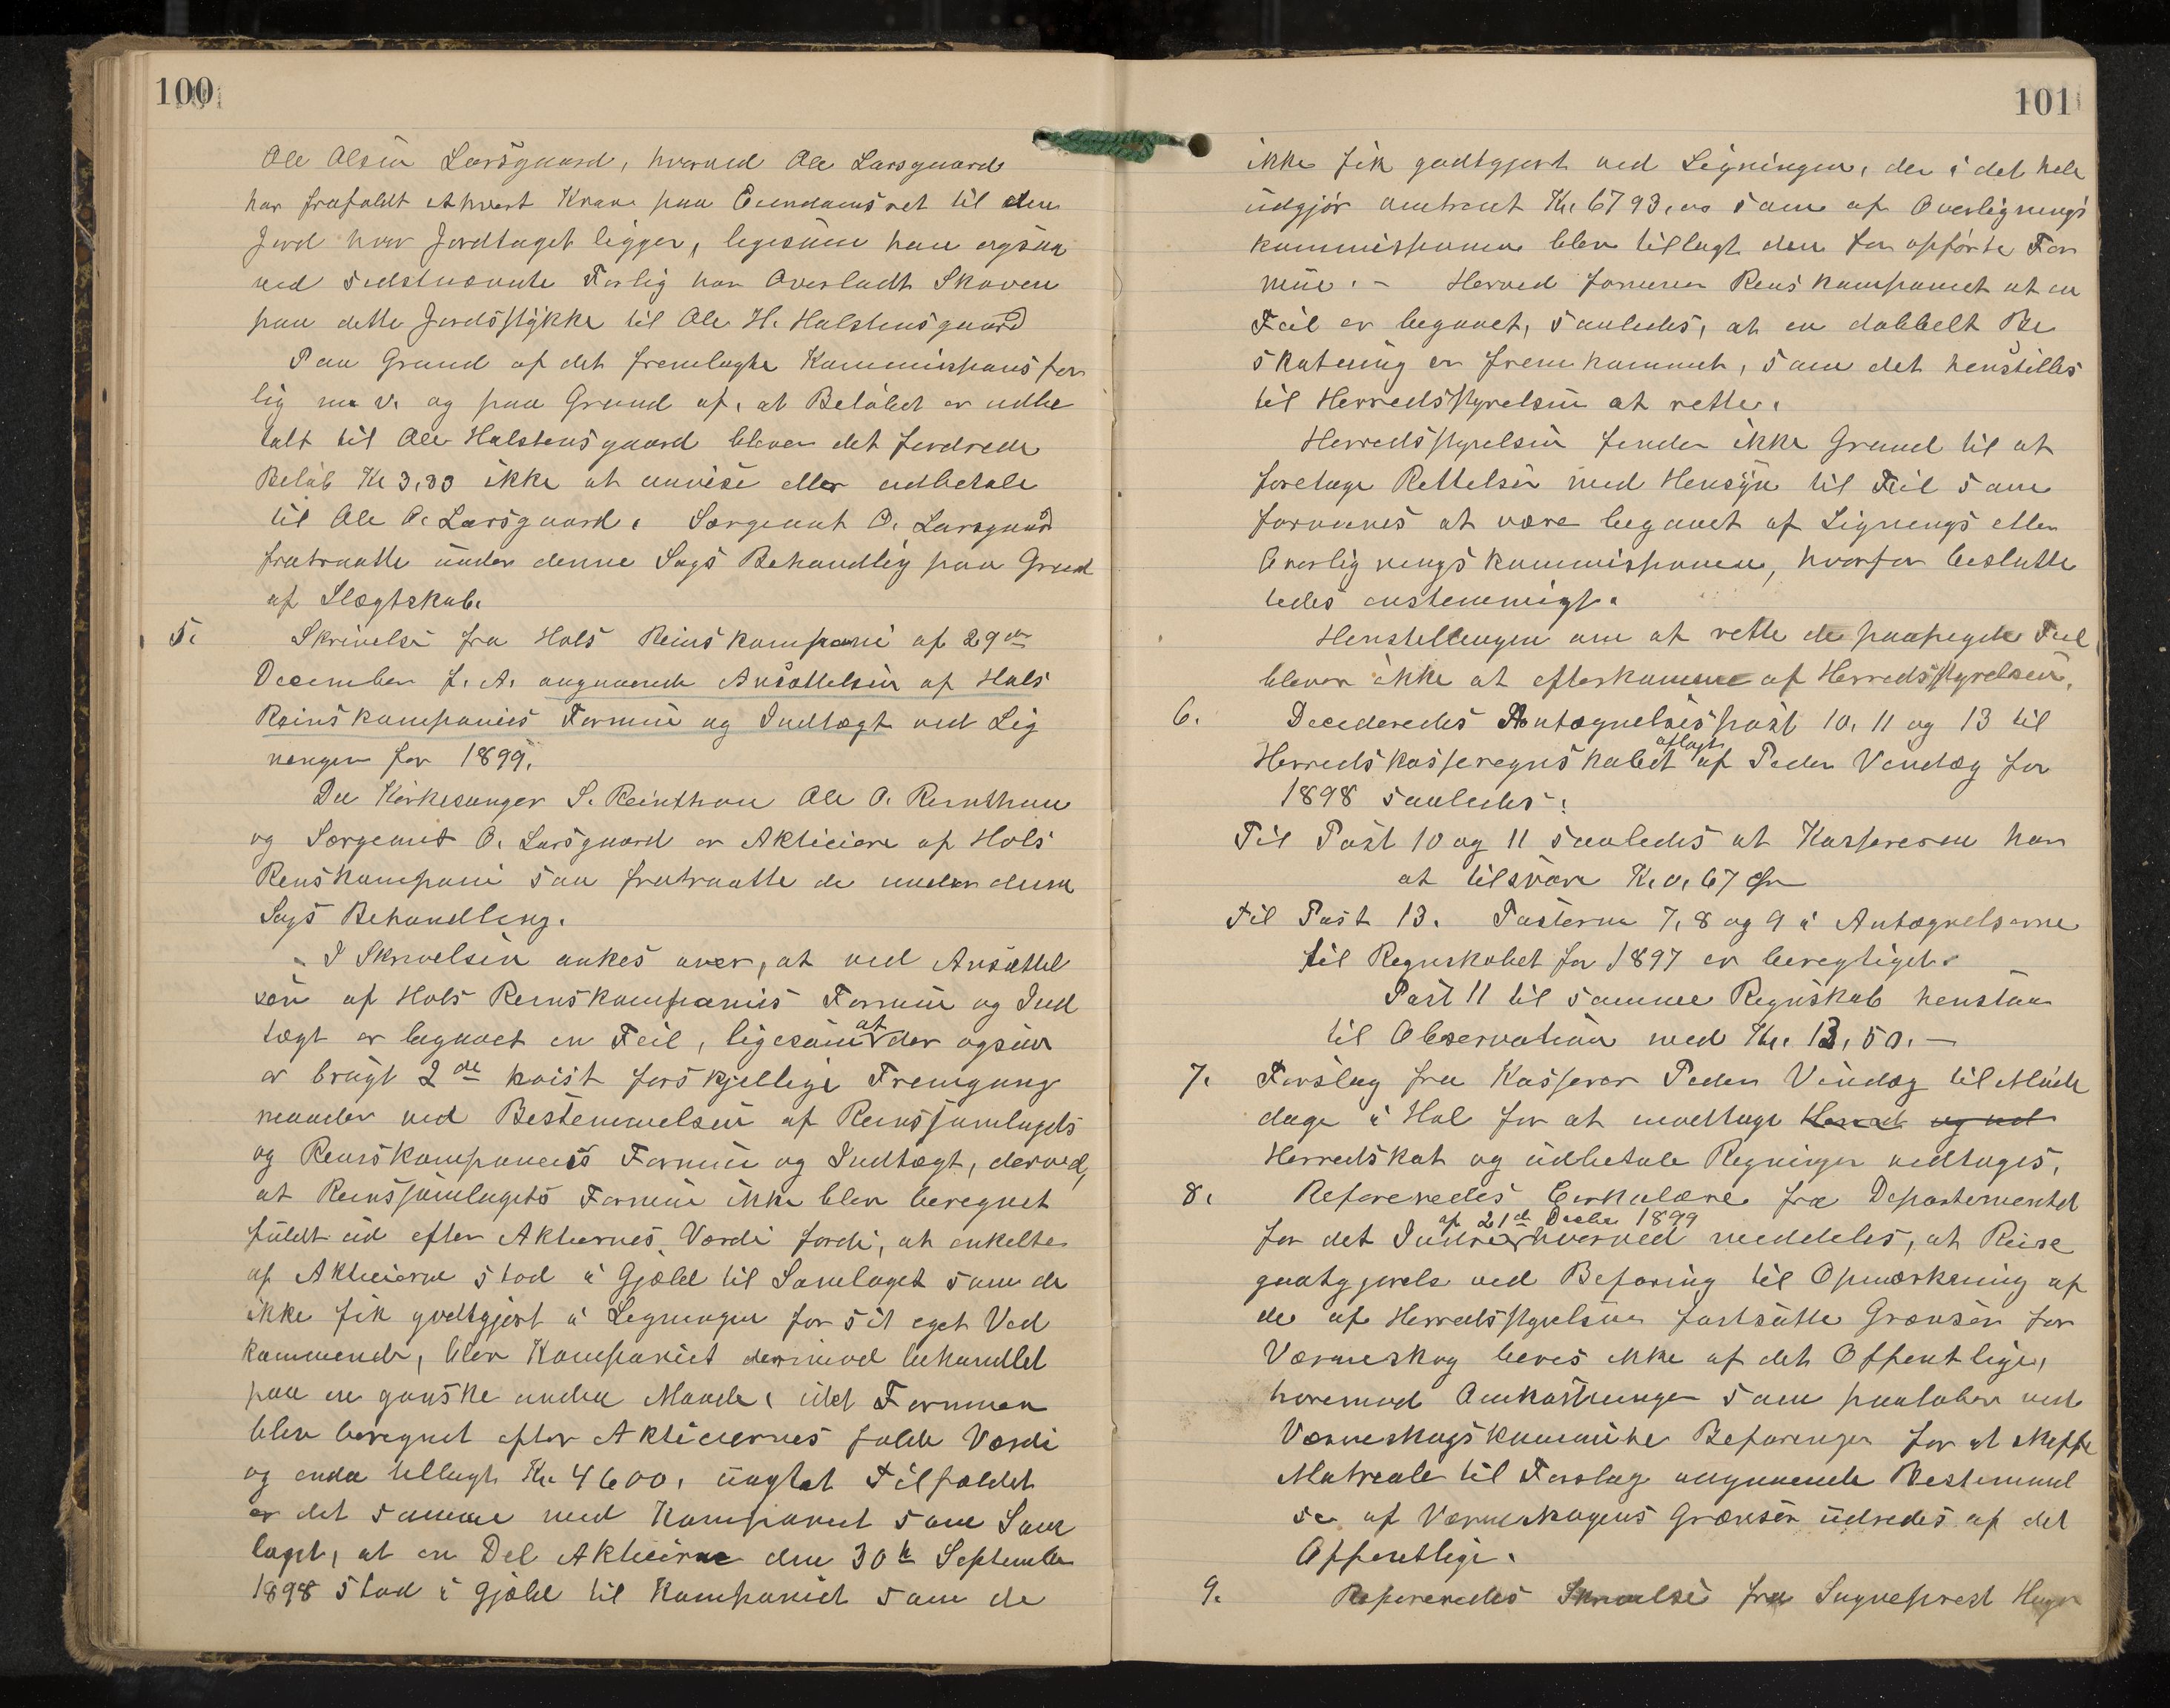 100
Ole Olsen Larsgaard, hvorved Ole Larsgaard
har frafaldt ethvert Krav paa Eiendomsret til den
Jord hvor Jordtaget ligger, ligesom han ogsaa
ved sidstnævnte Forlig har Overladt Skoven
paa dette Jordstykke til Ole H. Halstensgaard
Paa Grund af det fremlagte Kommissionsfor
lig m. v. og paa Grund af, at Beløbet er udbe
talt til Ole Halstensgaard bliver det fordrede
Beløb Kr 3,33 ikke at anvise eller udbetale
til Ole O. Larsgaard. Sergeant O. Larsgaard
fratraatte under denne Sags Behandlig paa Grund
af Slægtskab.
5. Skrivelse fra Hols Reinskompani af 29de
December f. A. angaaende Ansættelsen af Hols
Reinskompanies Formue og Indtægt ved Lig
ningen for 1899.
Da Kirkesanger S. Reinthon Ole O. Reinthon
og Sergeant O. Larsgaard er Aktieiere af Hols
Renskompani saa fratraatte de under denne
Sags Behandling.
I Skrivelsen ankes over, at ved Ansættel
sen af Hols Renskompanies Formue og Ind
tægt er begaaet en Feil, ligesom at der ogsaa
er brugt 2de høist forskjellige Fremgangs
maader ved Bestemmelsen af Renssamlagets
og Renskompaniets Formue og Indtægt, derved,
at Renssamlagets Formue ikke blev beregnet
fuldt ud efter Aktiernes Værdi fordi, at enkelte
af Aktieierne stod i Gjæld til Samlaget som de
ikke fik godtgjort i Ligningen for sit eget Ved
kommende, blev Kompaniet derimod behandlet
paa en ganske anden Maade, idet Formuen
blev beregnet efter Aktieiernes fulde Værdi
og enda tillagt Kr 4600, uagtet Tilfældet
er det samme med Kompaniet som Sam
laget, at en Del Aktieiere den 30te September
1898 stod i Gjæld til Kompaniet som de
101
ikke fik godtgjort ved Ligningen, der i det hele
udgjør omtrent Kr. 6793,00 som af Overlignings
kommissionen blev tillagt den før opførte For
mue. – Herved formener Renskompaniet at en
Feil er begaaet, saaledes, at en dobbelt Be
skatning er fremkommet, som det henstilles
til Herredsstyrelsen at rette.
Herredsstyrelsen finder ikke Grund til at
foretage Rettelser med Hensyn til Feil som
formenes at være begaaet af Lignings eller
Overligningskommissionen, hvorfor beslutte
tedes enstemmigt.
Henstillingen om at rette de paapegede Feil
bliver ikke at efterkomme af Herredsstyrelsen.
6. Decideredes Antegnelsespost 10, 11 og 13 til
Herredskasseregnskabet aflagt af Peder Vindæg for
1898 saaledes:
Til Post 10 og 11 saaledes at Kassereren har
at tilsvare Kr. 0,67 Øre
Til Post 13. Posterne 7, 8 og 9 i Antegnelserne
til Regnskabet for 1897 er beregtiget.
Post 11 til samme Regnskab henstaar
til Observation med Kr. 13,50. –
7. Forslag fra Kasserer Peder Vindæg til Møde
dage i Hol for at modtage Herred og ud
Herredskat og udbetale Regninger vedtages.
8. Refereredes Cirkulære fra Departementet
for det Indre af 21de Decbr 1899 hvorved meddeles, at Reise
godtgjørels ved Befaring til Opmærkning af
de af Herredsstyrelsen fastsatte Grænser for
Værneskog bæres ikke af det Offentlige,
hvormod Omkostninger som paaløber ved
Værneskogskommite Befaringer for at skaffe
Matreale til Forslag angaaende Bestemmel
se af Værneskogens Grænser udredes af det
Offentlige.
9. Refereredes Skrivelse fra Sogneprest